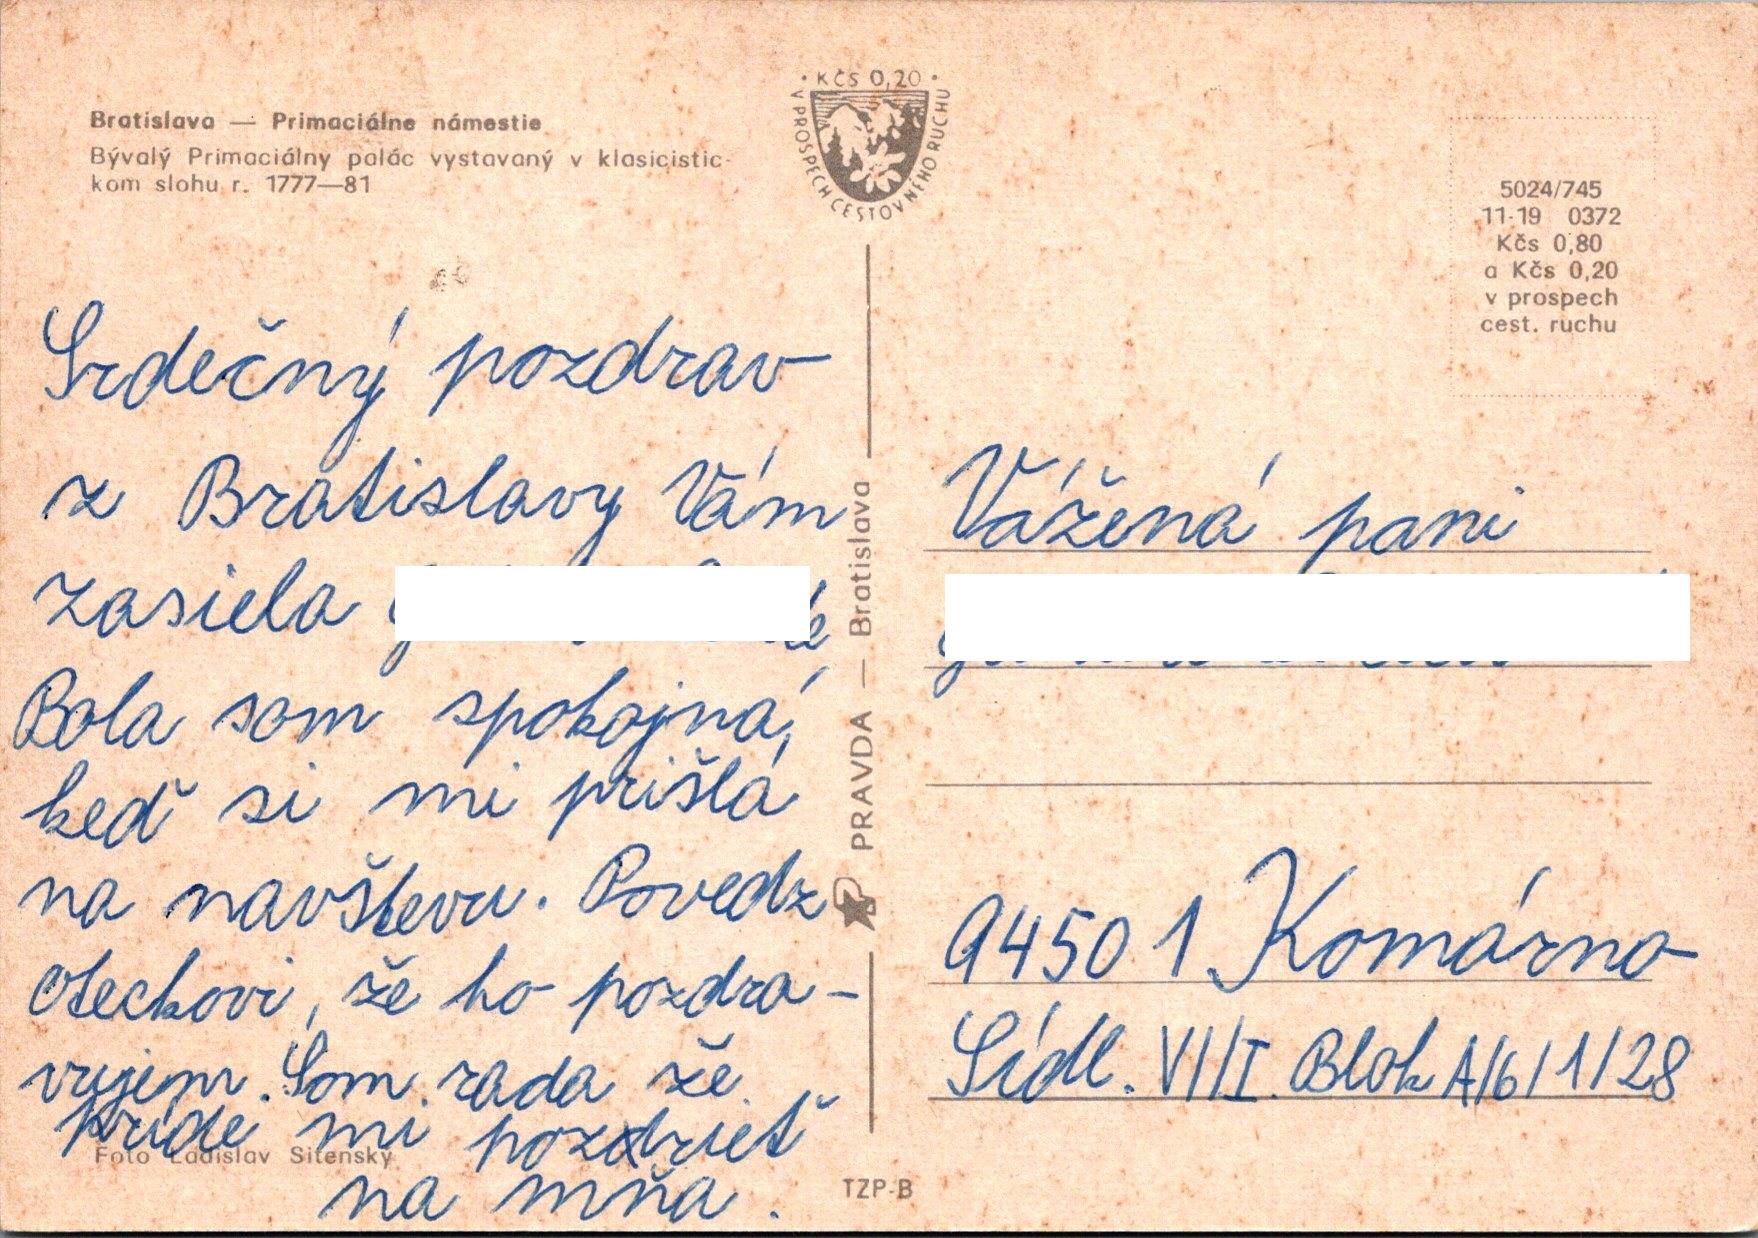 Bratislava — Primaciálne námestie
Bývalý Primaciálny palác vystavaný v klasicistic-
kom slohu r. 1777—81
• KČS 0,20 •
V PROSPECH CESTOVNÉHO RUCHU
5024/745
11-19 0372
Kčs 0,80
a Kčs 0,20
v prospech
cest. ruchu
Srdečný pozdrav
z Bratislavy Vám
zasiela
Bola som spokojná,
keď si mi prišla
na navštevu. Povedz
oteckovi, že ho pozdra-
vujem. Som rada že
príde mi pozdrieť
na mňa.
Foto Ladislav Sitenský
PRAVDA — Bratislava
TZP-B
Vážená pani
94501 Komárno
Sídl. VII/I. Blok A/6/1/28